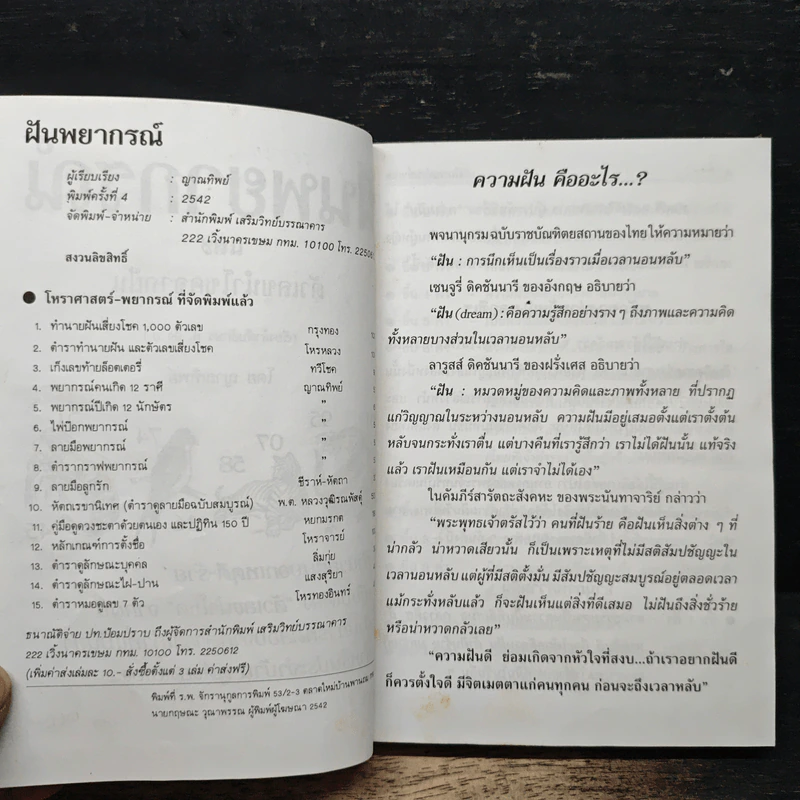 ฝันพยากรณ์
ผู้เรียบเรียง : ญาณทิพย์
พิมพ์ครั้งที่ 4 : 2542
จัดพิมพ์-จำหน่าย : สำนักพิมพ์ เสริมวิทย์บรรณาคาร
222 เวิ้งนาครเขษม กทม. 10100 โทร.
สงวนลิขสิทธิ์
● โหราศาสตร์-พยากรณ์ ที่จัดพิมพ์แล้ว
1. ทำนายฝันเสี่ยงโชค 1,000 ตัวเลข กรุงทอง
2. ตำราทำนายฝัน และตัวเลขเสี่ยงโชค โหรหลวง
3. เก็งเลขท้ายล็อตเตอรี่ ทวีโชค
4. พยากรณ์คนเกิด 12 ราศี ญาณทิพย์
5. พยากรณ์ปีเกิด 12 นักษัตร "
6. ไพ่ป๊อกพยากรณ์ "
7. ลายมือพยากรณ์ "
8. ตำรากราฟพยากรณ์ "
9. ลายมือลูกรัก ชีราห์-หัตถา
10. หัตถเรขานิเทศ (ตำราดูลายมือฉบับสมบูรณ์) พ.ต. หลวงวุฒิรณพัสดุ์
11. คู่มือดูดวงชะตาด้วยตนเอง และปฏิทิน 150 ปี หยกมรกต
12. หลักเกณฑ์การตั้งชื่อ โหราจารย์
13. ตำราดูลักษณะบุคคล ลิ่มกุ่ย
14. ตำราดูลักษณะไฝ-ปาน แสงสุริยา
15. ตำราหมอดูเลข 7 ตัว โหรทองอินทร์
ธนาณัติจ่าย ปท.ป้อมปราบ ถึงผู้จัดการสำนักพิมพ์ เสริมวิทย์บรรณาคาร
222 เวิ้งนาครเขษม กทม. 10100 โทร. 2250612
(เพิ่มค่าส่งเล่มละ 10.- สั่งซื้อตั้งแต่ 3 เล่ม ค่าส่งฟรี)
พิมพ์ที่ ร.พ. จักรานุกูลการพิมพ์ 53/2-3 ตลาดใหม่บ้านพานถม
นายกฤษณะ วุฒาพรรณ ผู้พิมพ์ผู้โฆษณา 2542
ความฝัน คืออะไร...?
พจนานุกรมฉบับราชบัณฑิตยสถานของไทยให้ความหมายว่า
“ฝัน : การนึกเห็นเป็นเรื่องราวเมื่อเวลานอนหลับ”
เซนจูรี่ ดิคชันนารี ของอังกฤษ อธิบายว่า
“ฝัน (dream) : คือความรู้สึกอย่างราง ๆ ถึงภาพและความคิด
ทั้งหลายบางส่วนในเวลานอนหลับ”
ลารูสส์ ดิคชันนารี ของฝรั่งเศส อธิบายว่า
“ฝัน : หมวดหมู่ของความคิดและภาพทั้งหลาย ที่ปรากฏ
แก่วิญญาณในระหว่างนอนหลับ ความฝันมีอยู่เสมอตั้งแต่เราตั้งต้น
หลับจนกระทั่งเราตื่น แต่บางคืนที่เรารู้สึกว่า เราไม่ได้ฝันนั้น แท้จริง
แล้ว เราฝันเหมือนกัน แต่เราจำไม่ได้เอง”
ในคัมภีร์สารัตถะสังคหะ ของพระนันทาจาริย์ กล่าวว่า
“พระพุทธเจ้าตรัสไว้ว่า คนที่ฝันร้าย คือฝันเห็นสิ่งต่าง ๆ ที่
น่ากลัว น่าหวาดเสียวนั้น ก็เป็นเพราะเหตุที่ไม่มีสติสัมปชัญญะใน
เวลานอนหลับ แต่ผู้ที่มีสติตั้งมั่น มีสัมปชัญญะสมบูรณ์อยู่ตลอดเวลา
แม้กระทั่งหลับแล้ว ก็จะฝันเห็นแต่สิ่งที่ดีเสมอ ไม่ฝันถึงสิ่งชั่วร้าย
หรือน่าหวาดกลัวเลย”
“ความฝันดี ย่อมเกิดจากหัวใจที่สงบ...ถ้าเราอยากฝันดี
ก็ควรตั้งใจดี มีจิตเมตตาแก่คนทุกคน ก่อนจะถึงเวลาหลับ”